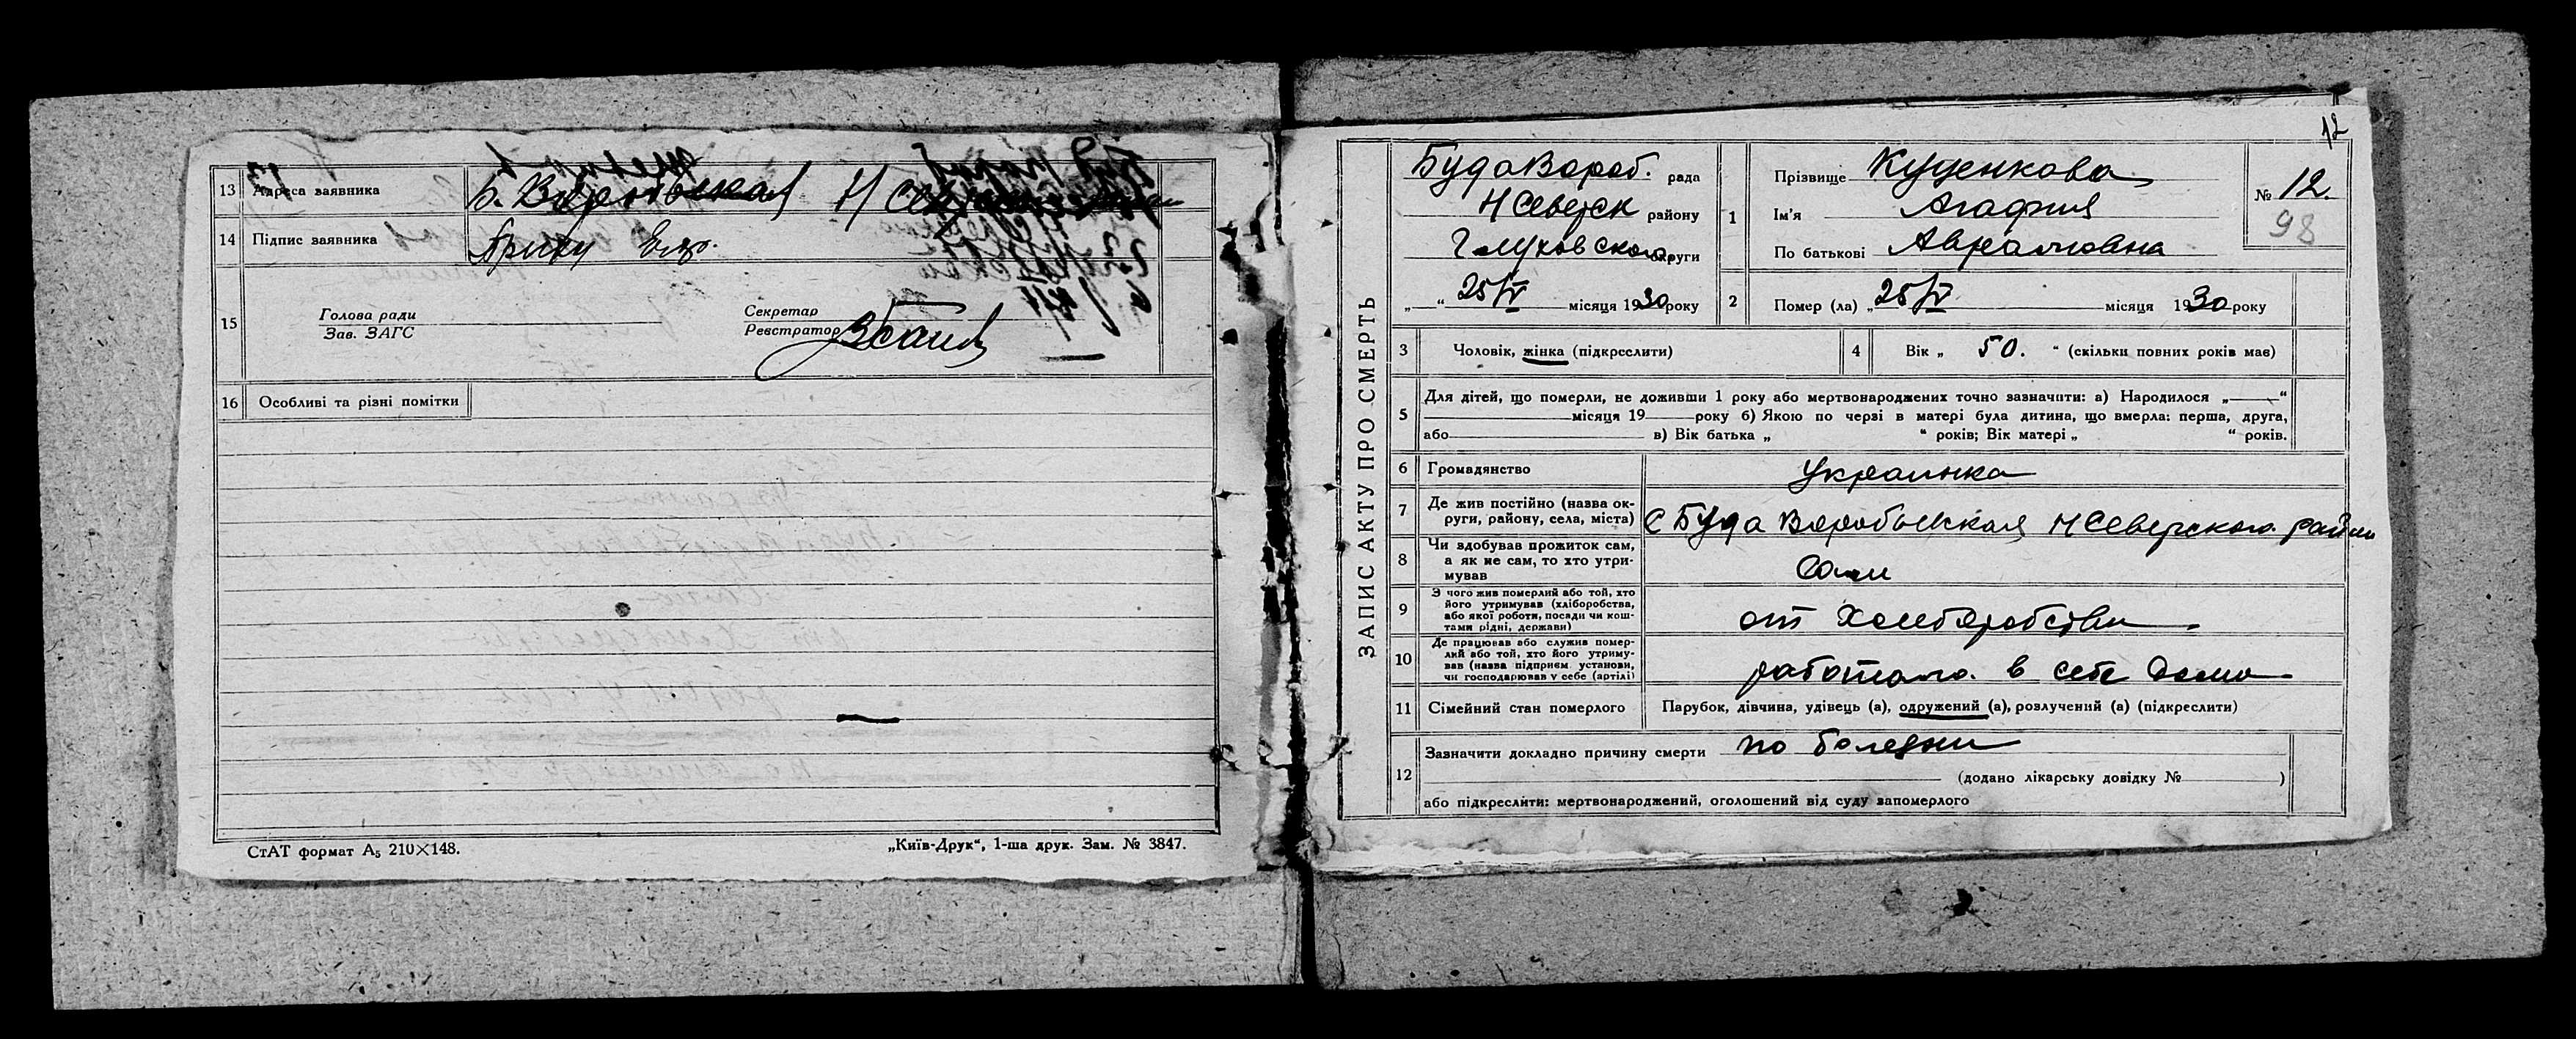 13 Адреса заявника Н/Север
14 Підпис заявника
15 Голова ради
Зав. ЗАГС
Секретар
Реєстратор
16 Особливі та різні помітки
СтАТ формат А5 210×148.
„Київ-Друк“, 1-ша друк. Зам. № 3847.
12
ЗАПИС АКТУ ПРО СМЕРТЬ
Буда Вороб. рада
Н Северск району
Глуховского округи
„ “ 25/IV місяця 1930 року
1 Прізвище Куденкова
Ім'я Агафия
По батькові Аврамовна
№ 12.
98
2 Помер (ла) „ 25/IV місяця 1930 року
3 Чоловік, жінка (підкреслити)
4 Вік „ 50. “ (скільки повних років має)
5 Для дітей, що померли, не доживши 1 року або мертвонароджених точно зазначити: а) Народилося „ “
місяця 19 року б) Якою по черзі в матері була дитина, що вмерла: перша, друга,
або в) Вік батька „ “ років; Вік матері „ “ років.
6 Громадянство Украинка
7 Де жив постійно (назва ок-
руги, району, села, міста) С Буда Воробьевская Н Северского района
8 Чи здобував прожиток сам,
а як не сам, то хто утри-
мував Сами
9 З чого жив померлий або той, хто
його утримував (хліборобства,
або якої роботи, посади чи кош-
тами рідні, держави) от
10 Де працював або служив помер-
лий або той, хто його утриму-
вав (назва підприєм. установи,
чи господарював у себе (артілі) работала в себе дома
11 Сімейний стан померлого Парубок, дівчина, удівець (а), одружений (а), розлучений (а) (підкреслити)
12 Зазначити докладно причину смерти по болезни
(додано лікарську довідку № )
або підкреслити: мертвонароджений, оголошений від суду запомерлого